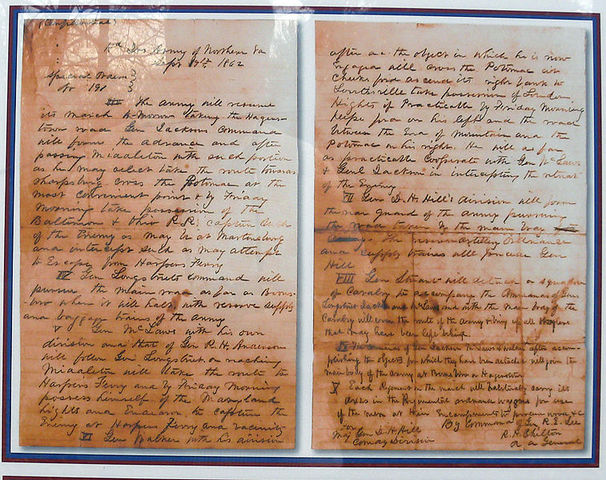 (Confidential)
Hd Qrs Army of Northern Va
Sept 9th 1862
Special Orders
No 191
III The Army will resume
its march to-morrow taking the Hagers-
town road. Gen Jacksons Command
will form the advance and after
passing Middleton with such portion
as he may select take the route towards
Sharpsburg cross the Potomac at the
most convenient point & by Friday
Morning take possession of the
Baltimore & Ohio R.R. capture such
of the Enemy as may be at Martinsburg
and intercept such as may attempt
to Escape from Harpers Ferry
IV Gen Longstreets command will
pursue the main road as far as Boons-
boro where it will halt with reserve supply
and baggage trains of the army
V Gen McLaws with his own
division and that of Gen R. H. Anderson
will follow Gen Longstreet on reaching
Middleton will take the route to
Harpers Ferry and by Friday Morning
possess himself of the Maryland
heights and Endeavor to capture the
Enemy at Harpers Ferry and vicinity
VI Gen Walker with his division
after the object in which he is now
Engaged will cross the Potomac at
Cheeks ford ascend its right bank to
Lovettsville take possession of Loudon
Heights if Practicable by Friday Morning
Keyes ford on his left and the road
between the End of Mountain and the
Potomac on his right. He will as far
as practicable Cooperate with Gen McLaws
& Genl Jackson in intercepting the retreat
of the Enemy
VII Gen D. H. Hill's division will form
the rear guard of the army pursuing
the road taken by the main body
The reserve artillery Ordnance
and supply trains will precede Gen
Hill
VIII Gen Stuart will detach a squadron
of Cavalry to accompany the Commands of Gens
Longstreet Jackson & McLaws and with the main body of the
Cavalry will cover the route of the army & bring up all stragglers
that may have been left behind
IX The commands of Gen Jackson McLaws & Walker after accom-
plishing the objects for which they have been detached will join the
main body of the army at Boonsboro or Hagerstown
X Each Regiment on the march will habitually carry its
axes in the Regimental ordnance wagons for use
of the men at their Encampments to procure wood &c
By Command of Gen R. E. Lee
For
Maj Gen D. H. Hill
R. H. Chilton
Comdg Division
A. A. General